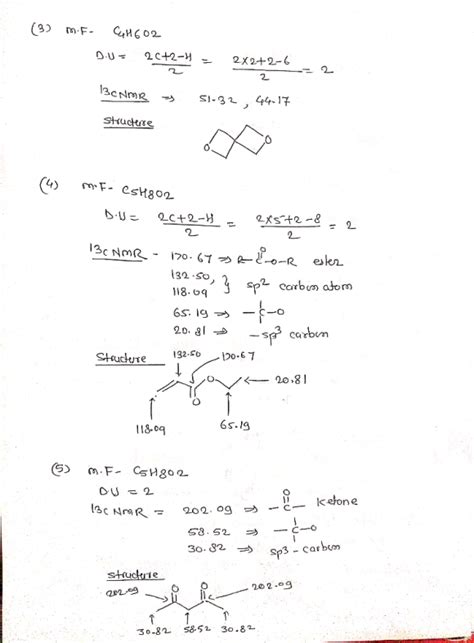 (3) M.F- C4H6O2
D.U = 2C+2-H / 2 = 2x2+2-6 / 2 = 2
13CNMR ⇒ 51.32, 44.17
Structure
O O
(4) M.F- C5H8O2
D.U = 2C+2-H / 2 = 2x5+2-8 / 2 = 2
13C NMR - 170.67 ⇒ R-C-O-R ester
O
132.50, } sp2 carbon atom
118.09
65.19 ⇒ -C-O
20.81 ⇒ -sp3 carbon
Structure 132.50 170.67
O 20.81
O
118.09 65.19
(5) M.F- C5H8O2
DU = 2
13C NMR = 202.09 ⇒ -C- Ketone
O
58.52 ⇒ -C-O
30.82 ⇒ sp3-carbon
Structure
202.09 O O 202.09
30.82 58.52 30.82